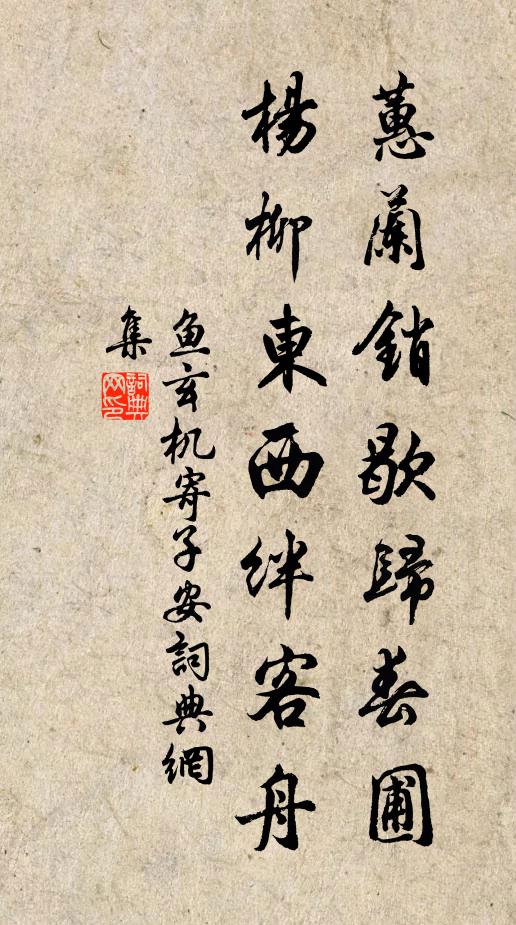 蕙蘭銷歇歸春圃
楊柳東西絆客舟
魚玄机寄子安詞典網
集
詞典網印